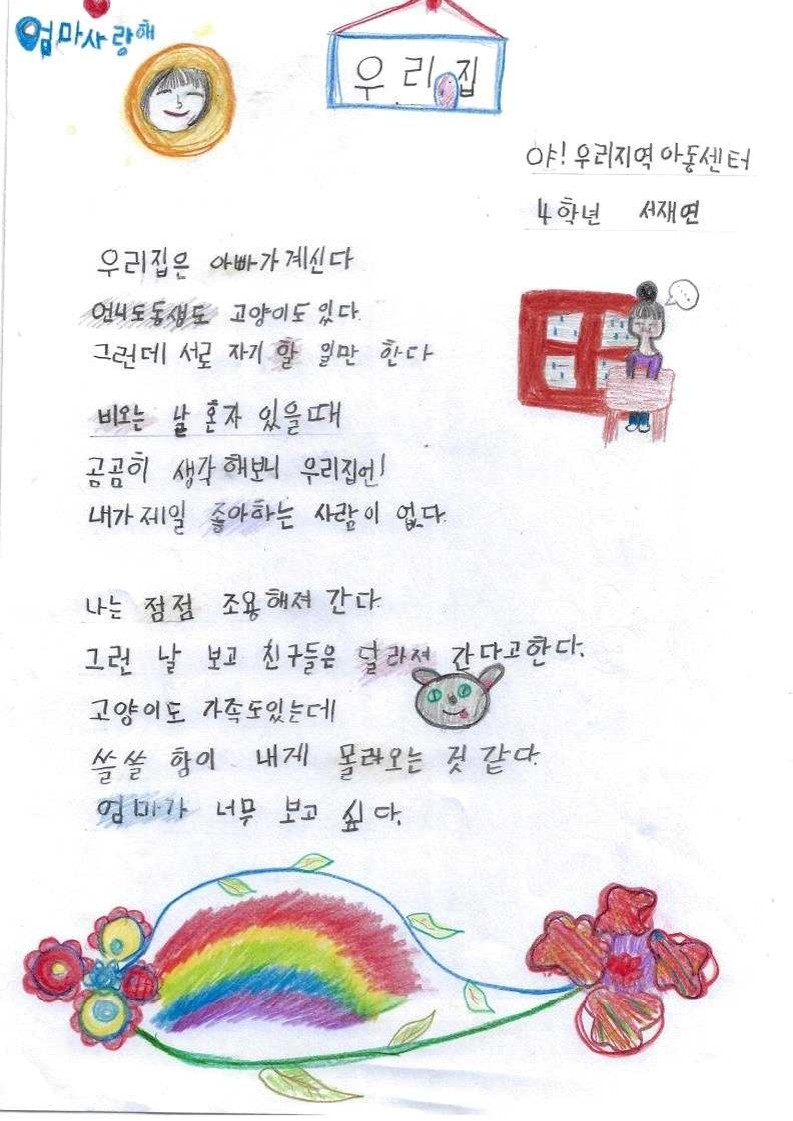 엄마사랑해
우리집
야! 우리지역아동센터
4학년 서재연
우리집은 아빠가계신다
언니도동생도 고양이도 있다.
그런데 서로 자기 할 일만 한다
비오는 날 혼자 있을때
곰곰히 생각해보니 우리집엔!
내가제일 좋아하는 사람이 없다.
나는 점점 조용해져 간다.
그런 날 보고 친구들은 달라져 간다고한다.
고양이도 가족도있는데
쓸쓸 함이 내게 몰라오는 것 같다.
엄마가 너무 보고 싶다.